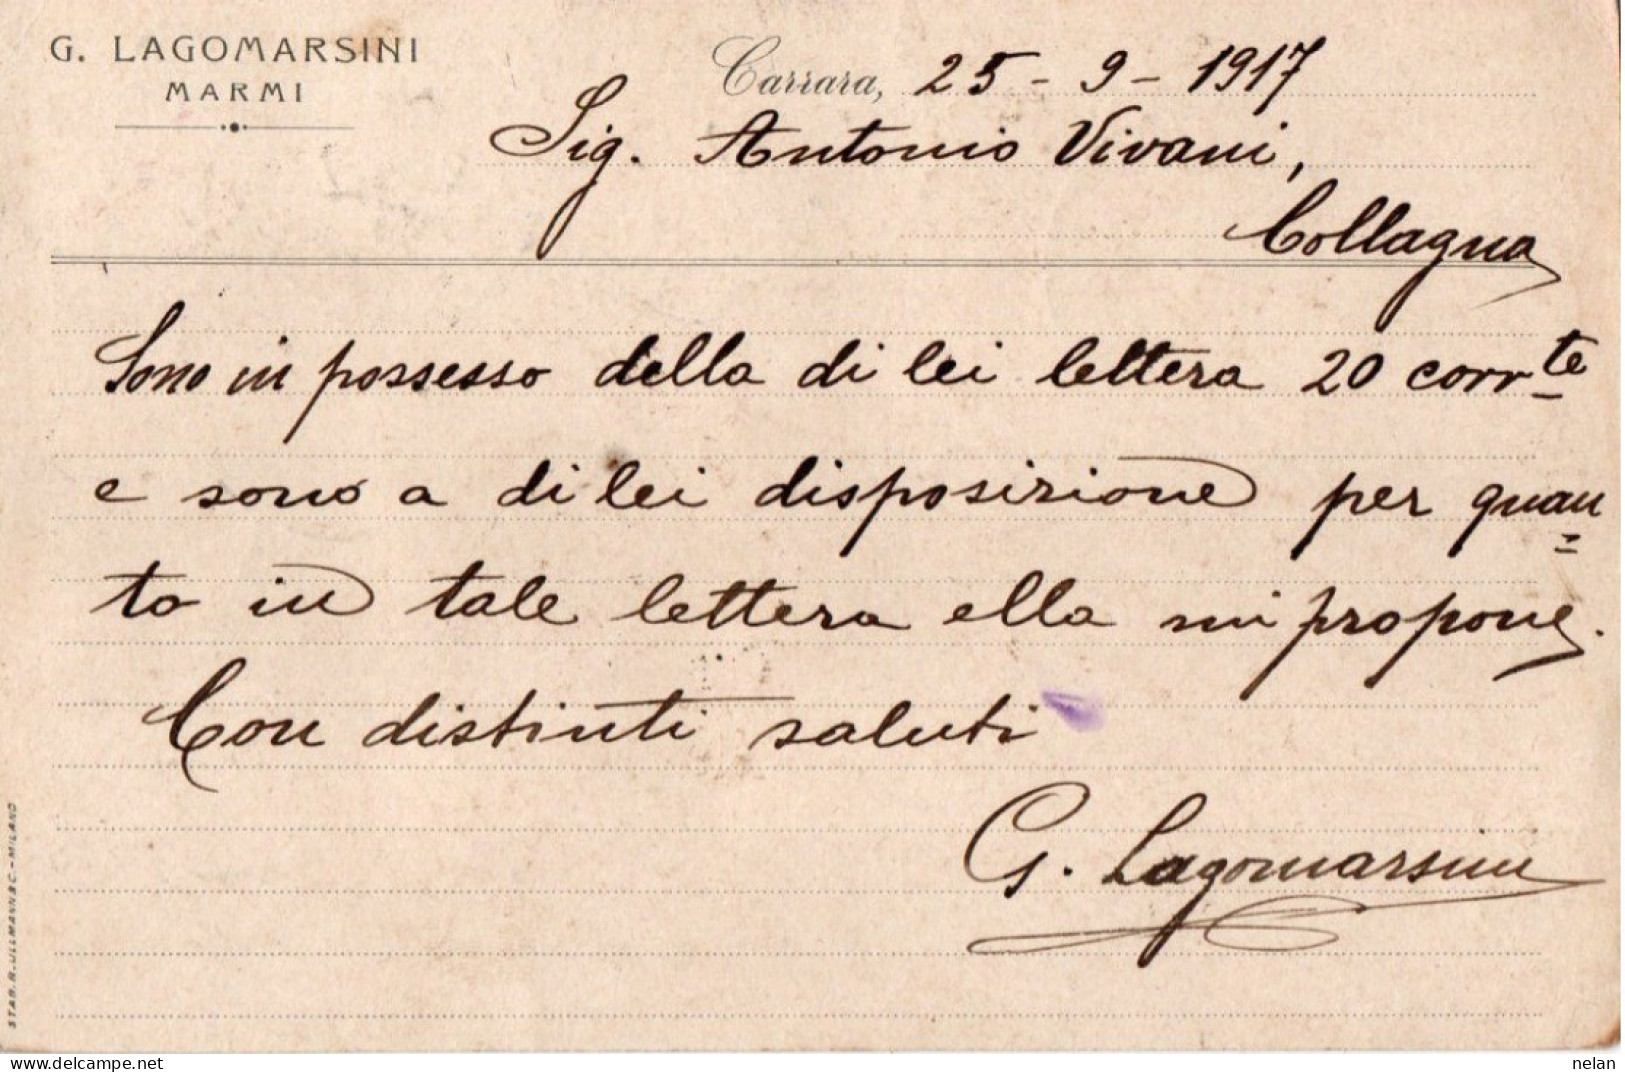 G. LAGOMARSINI
MARMI
Carrara, 25 - 9 - 1917
Sig. Antonio Vivani,
Collagna
Sono in possesso della di lei lettera 20 corr.te
e sono a di lei disposizione per quan=
to in tale lettera ella mi propone.
Con distinti saluti
G. Lagomarsini
STAB. A. ULLMANN & C. - MILANO
https://www.delcampe.net
nelan